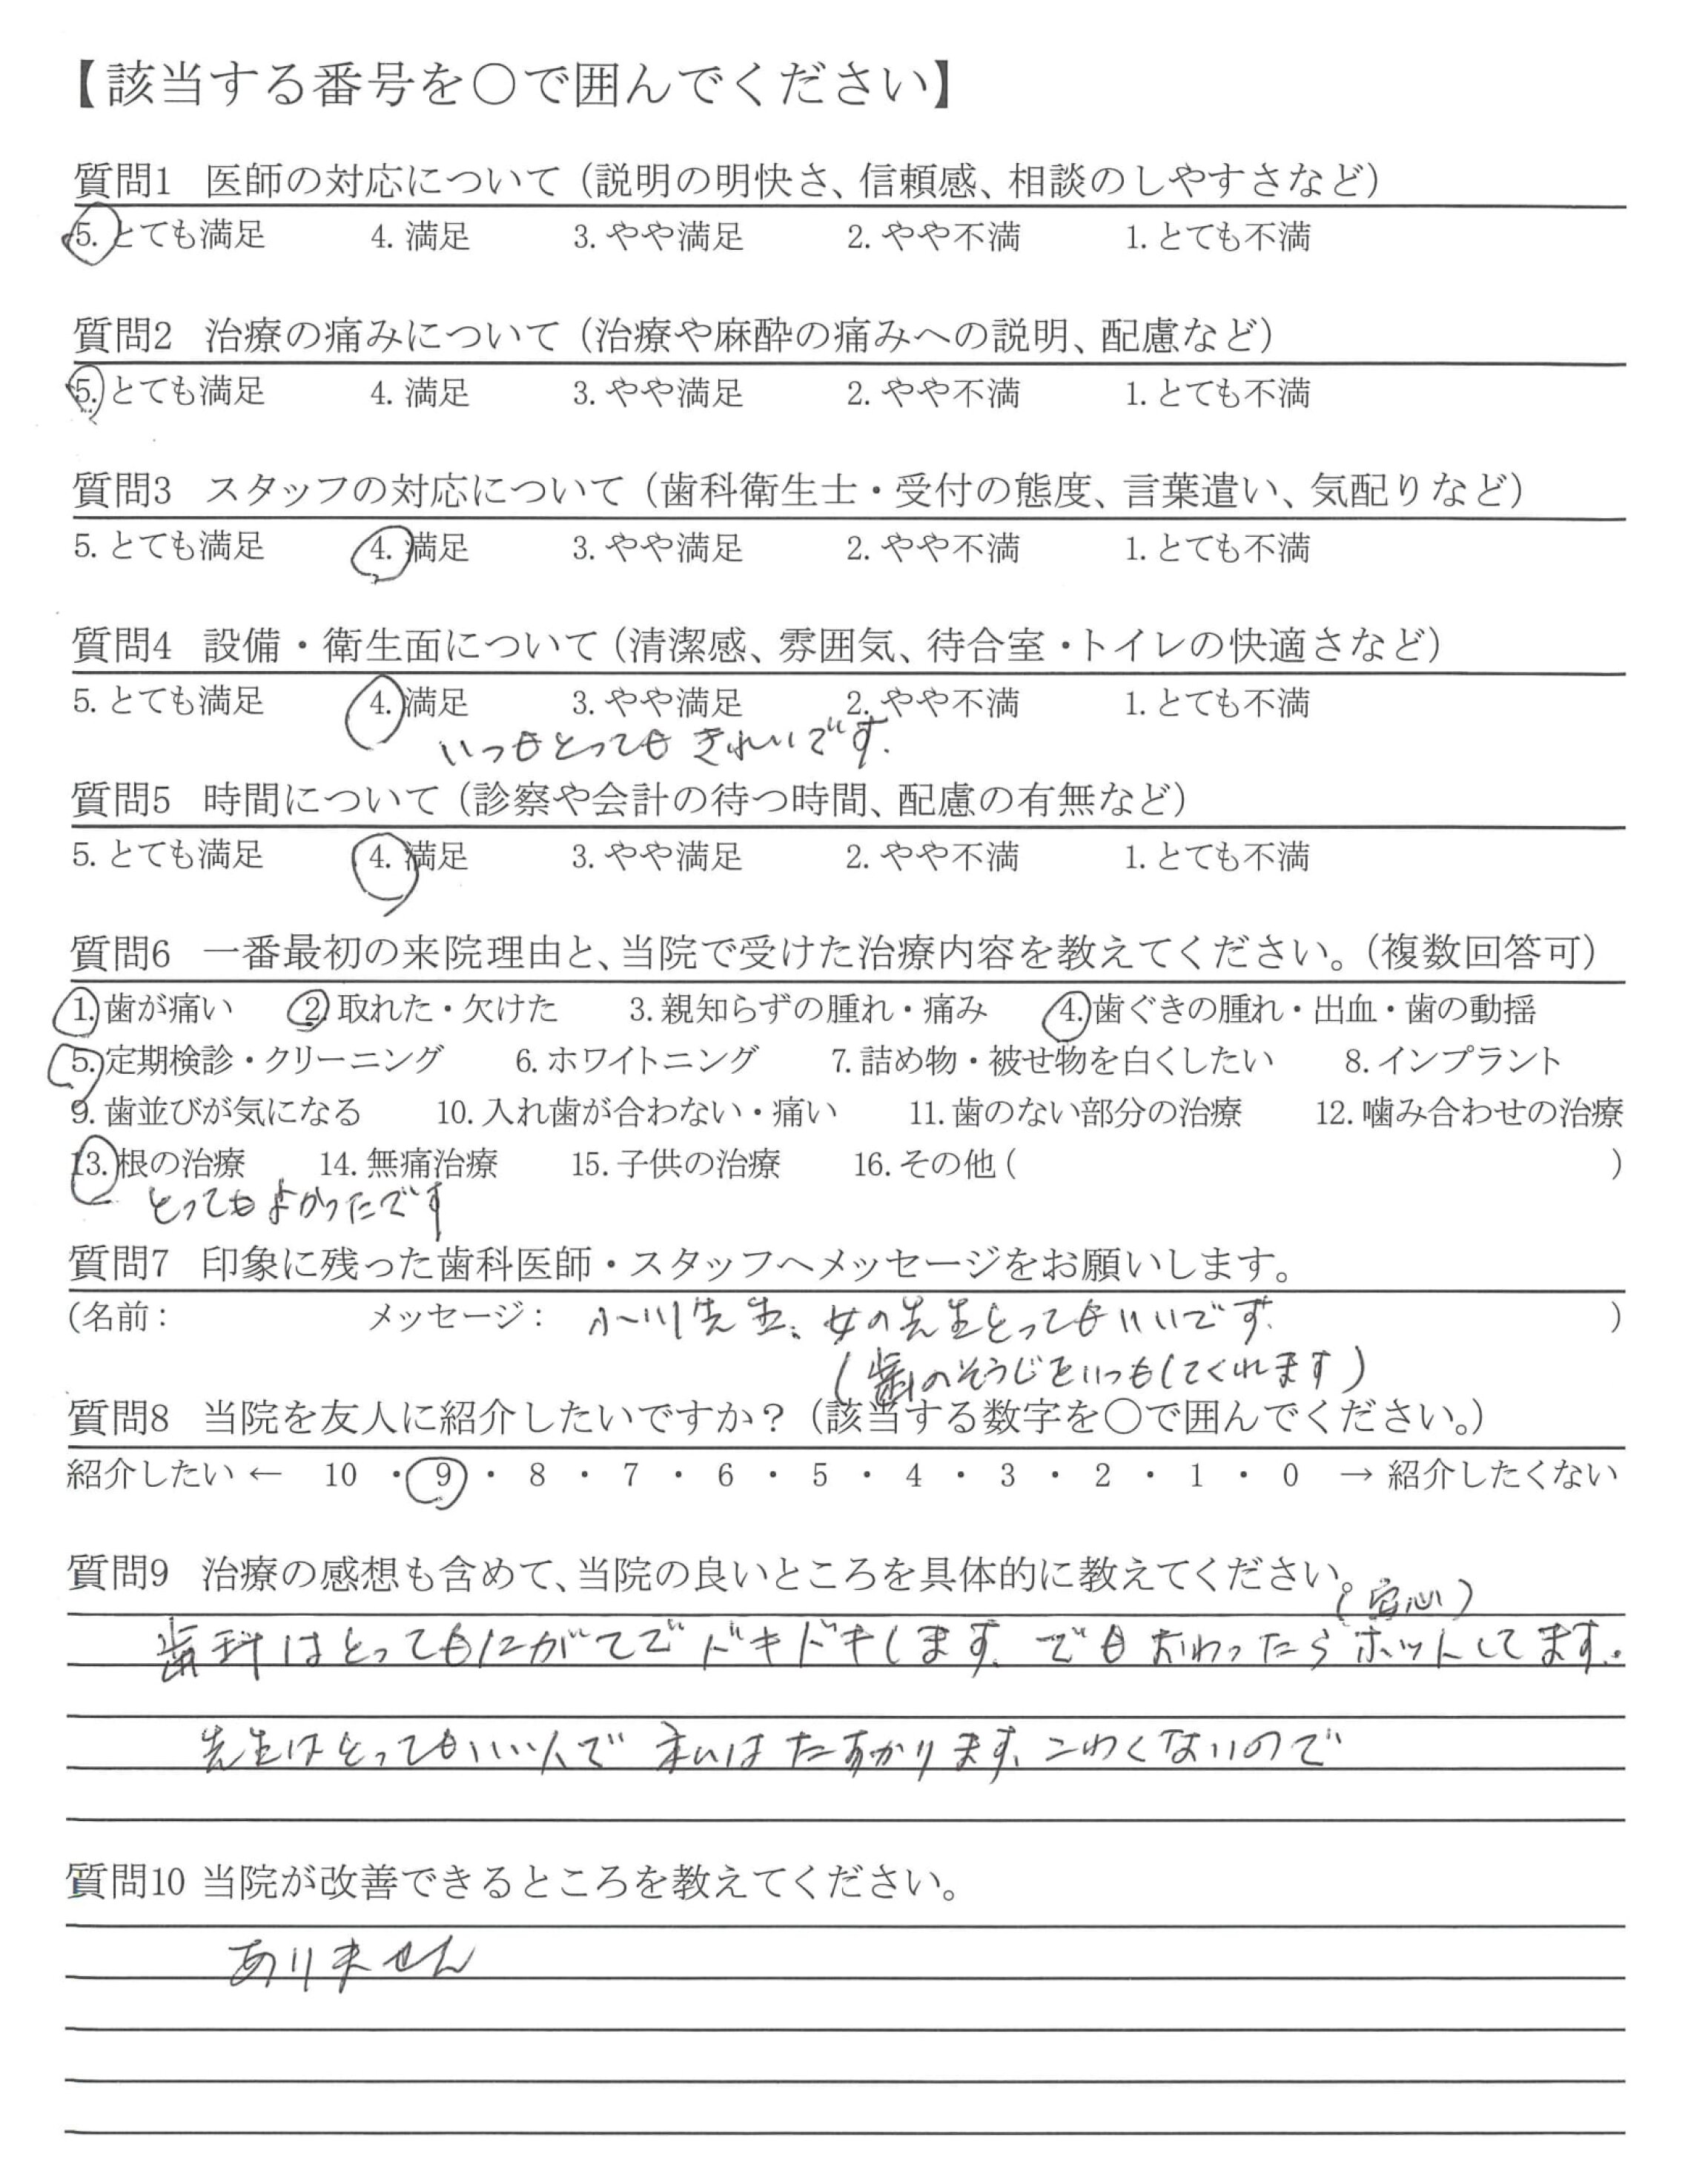 【該当する番号を〇で囲んでください】
質問1 医師の対応について（説明の明快さ、信頼感、相談のしやすさなど）
5. とても満足 4. 満足 3. やや満足 2. やや不満 1. とても不満
質問2 治療の痛みについて（治療や麻酔の痛みへの説明、配慮など）
5. とても満足 4. 満足 3. やや満足 2. やや不満 1. とても不満
質問3 スタッフの対応について（歯科衛生士・受付の態度、言葉遣い、気配りなど）
5. とても満足 4. 満足 3. やや満足 2. やや不満 1. とても不満
質問4 設備・衛生面について（清潔感、雰囲気、待合室・トイレの快適さなど）
5. とても満足 4. 満足 3. やや満足 2. やや不満 1. とても不満
いつもとってもきれいです.
質問5 時間について（診察や会計の待つ時間、配慮の有無など）
5. とても満足 4. 満足 3. やや満足 2. やや不満 1. とても不満
質問6 一番最初の来院理由と、当院で受けた治療内容を教えてください。（複数回答可）
1. 歯が痛い 2. 取れた・欠けた 3. 親知らずの腫れ・痛み 4. 歯ぐきの腫れ・出血・歯の動揺
5. 定期検診・クリーニング 6. ホワイトニング 7. 詰め物・被せ物を白くしたい 8. インプラント
9. 歯並びが気になる 10. 入れ歯が合わない・痛い 11. 歯のない部分の治療 12. 噛み合わせの治療
13. 根の治療 14. 無痛治療 15. 子供の治療 16. その他（ ）
とってもよかったです
質問7 印象に残った歯科医師・スタッフへメッセージをお願いします。
（名前： メッセージ： 小川先生、女の先生とってもいいです. ）
（歯のそうじをいつもしてくれます）
質問8 当院を友人に紹介したいですか？（該当する数字を〇で囲んでください。）
紹介したい ← 10 ・ 9 ・ 8 ・ 7 ・ 6 ・ 5 ・ 4 ・ 3 ・ 2 ・ 1 ・ 0 → 紹介したくない
質問9 治療の感想も含めて、当院の良いところを具体的に教えてください。
（安心）
歯科はとってもにがてでドキドキします. でもおわったらホットしてます.
先生はとってもいい人で私はたすかります. こわくないので
質問10 当院が改善できるところを教えてください。
ありません